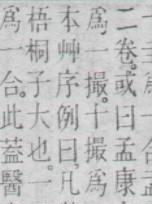 二卷。或曰孟康
爲一撮。十撮爲
本艸序例曰。凡
梧桐子大也。一
爲一合。此蓋醫